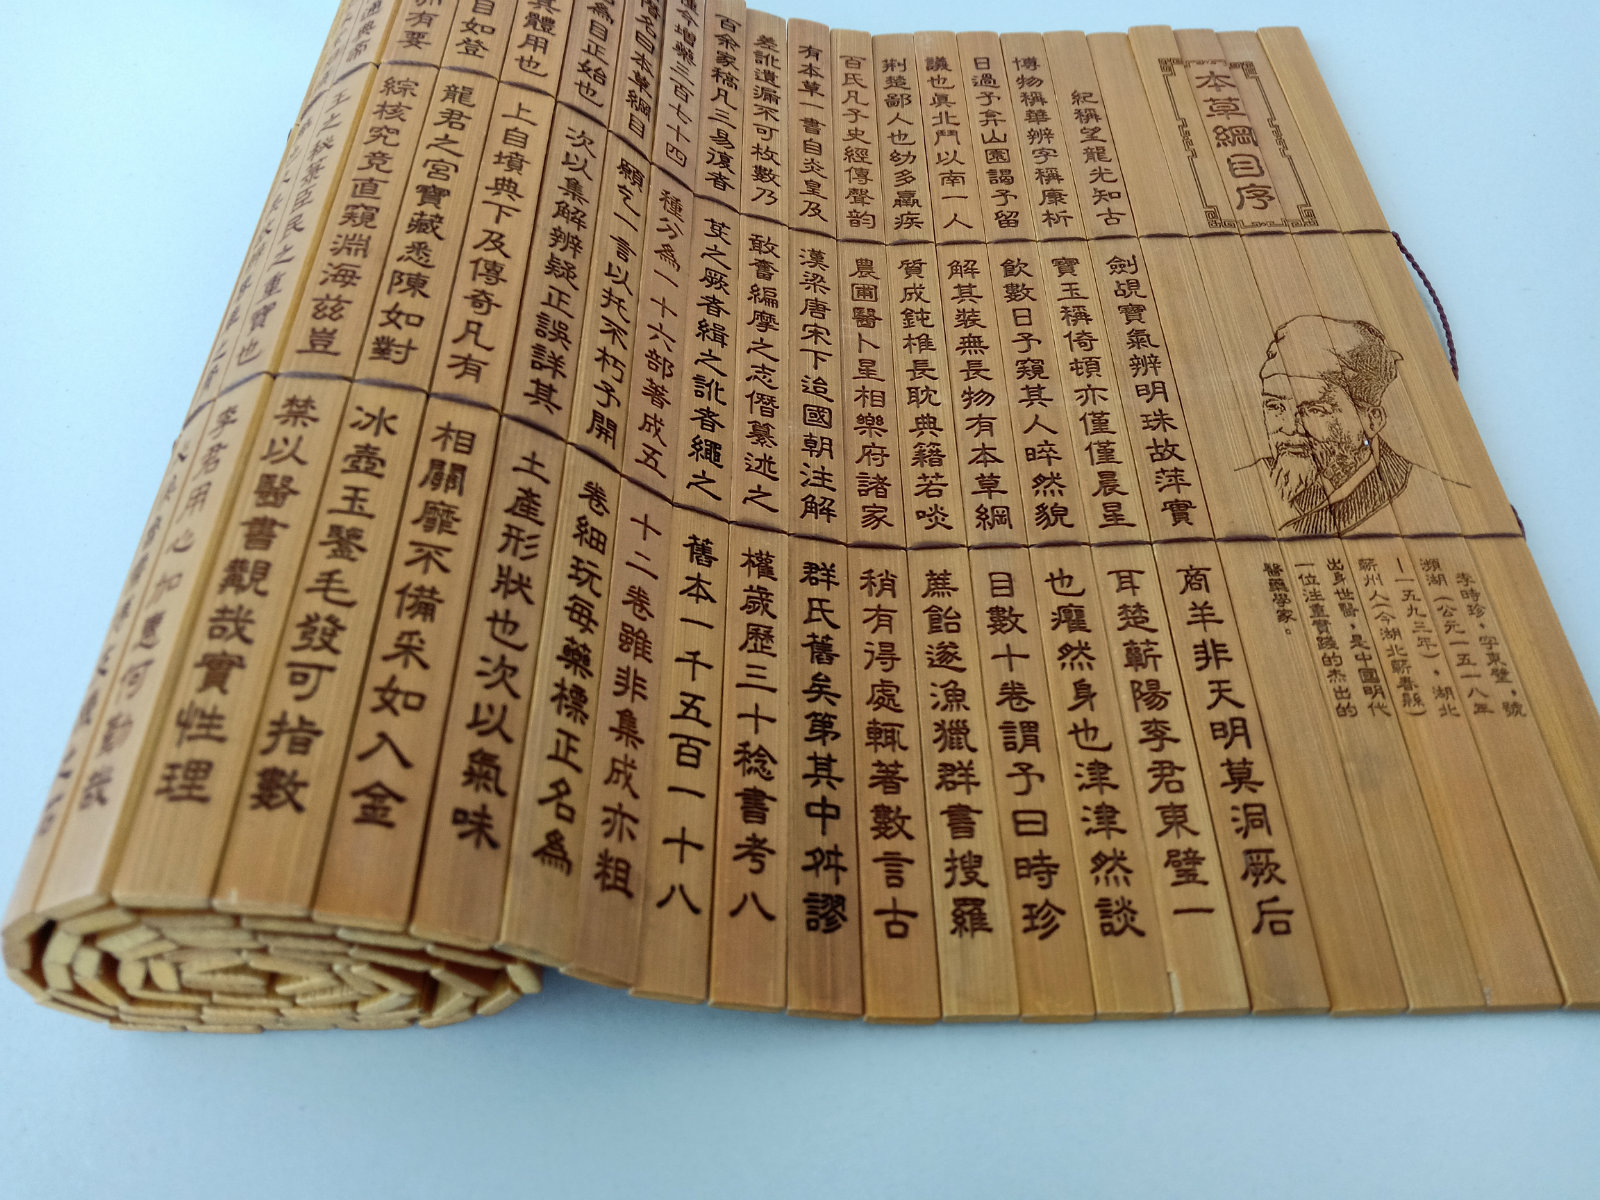 本草綱目序
李時珍，字東璧，號
瀕湖（公元一五一八年
—一五九三年），湖北
蘄州人（今湖北蘄春縣）
出身世醫，是中國明代
一位注重實踐的杰出的
醫藥學家。
紀稱望龍光知古劍覘寶氣辨明珠故萍實商羊非天明莫洞厥后
博物稱華辨字稱康析寶玉稱倚頓亦僅僅晨星耳楚蘄陽李君東璧一
日過予弇山園謁予留飲數日予窺其人晬然貌也癯然身也津津然談
議也眞北鬥以南一人解其裝無長物有本草綱目數十卷謂予曰時珍
荆楚鄙人也幼多羸疾質成鈍椎長耽典籍若啖蔗飴遂漁獵群書搜羅
百氏凡子史經傳聲韵農圃醫卜星相樂府諸家稍有得處輒著數言古
有本草一書自炎皇及漢梁唐宋下迨國朝注解群氏舊矣第其中舛謬
差訛遺漏不可枚數乃敢奮編摩之志僭纂述之權歲歷三十稔書考八
百余家稿凡三易復者芟之厥者緝之訛者繩之舊本一千五百一十八
種今增藥三百七十四種分為一十六部著成五十二卷雖非集成亦粗
僭名曰本草綱目願乞一言以托不朽予開卷細玩每藥標正名為
名為目正始也次以集解辨疑正誤詳其土產形狀也次以氣味
其體用也上自墳典下及傳奇凡有相關靡不備采如入金
目如登龍君之宮寶藏悉陳如對冰壺玉鑒毛發可指數
有要綜核究竟直窺淵海茲豈禁以醫書覯哉實性理
王之秘籙臣民之重寶也李君用心加惠何勤哉